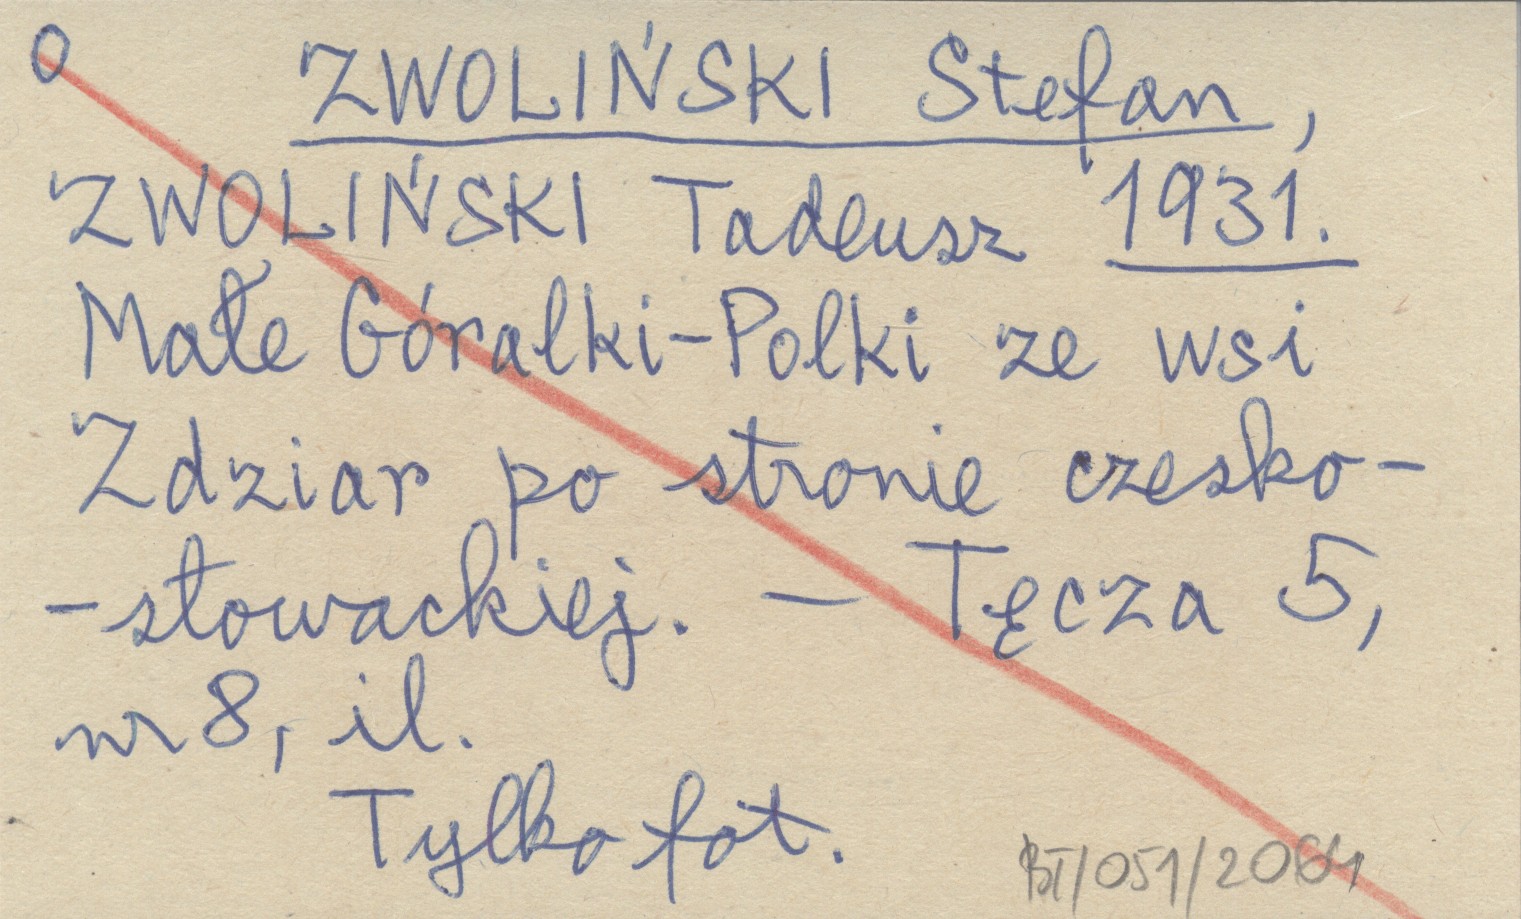 O ZWOLIŃSKI Stefan,
ZWOLIŃSKI Tadeusz 1931.
Małe Góralki-Polki ze wsi
Zdziar po stronie czesko-
-słowackiej. — Tęcza 5,
nr 8, il.
Tylko fot.
BT/051/2061